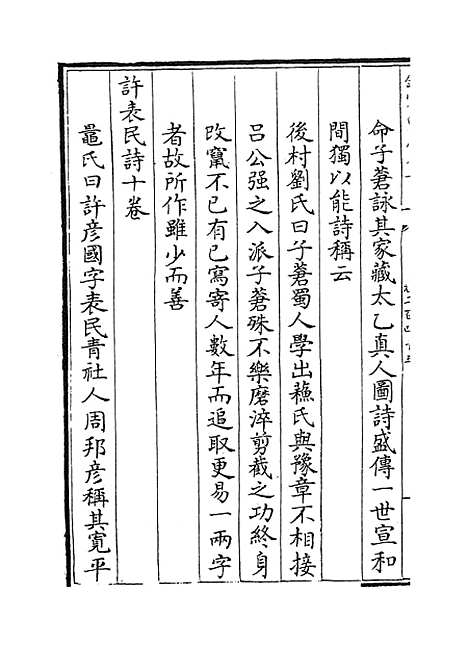 命子蒼詠其家藏太乙真人圖詩盛傳一世宣和
間獨以能詩稱云
後村劉氏曰子蒼蜀人學出蘓氏與豫章不相接
吕公强之入派子蒼殊不樂磨淬剪截之功終身
改竄不已有已寫寄人數年而追取更易一兩字
者故所作雖少而善
許表民詩十卷
鼂氏曰許彦國字表民青社人周邦彦稱其寛平